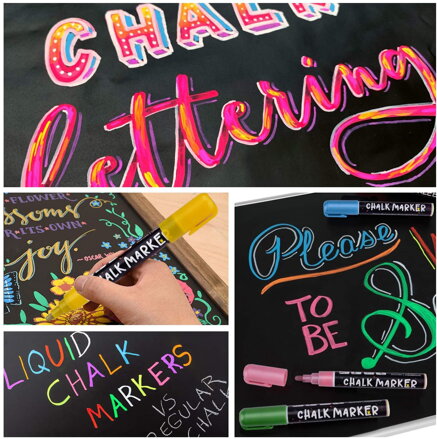 CHALK
lettering
FLOWER
blossoms
OR ITS OWN
joy.
- OSCAR
CHALK MARKER
LIQUID
CHALK
MARKERS
VS
REGULAR
CHALK
CHALK MARKER
Please
TO
BE
CHALK MARKER
CHALK MARKER